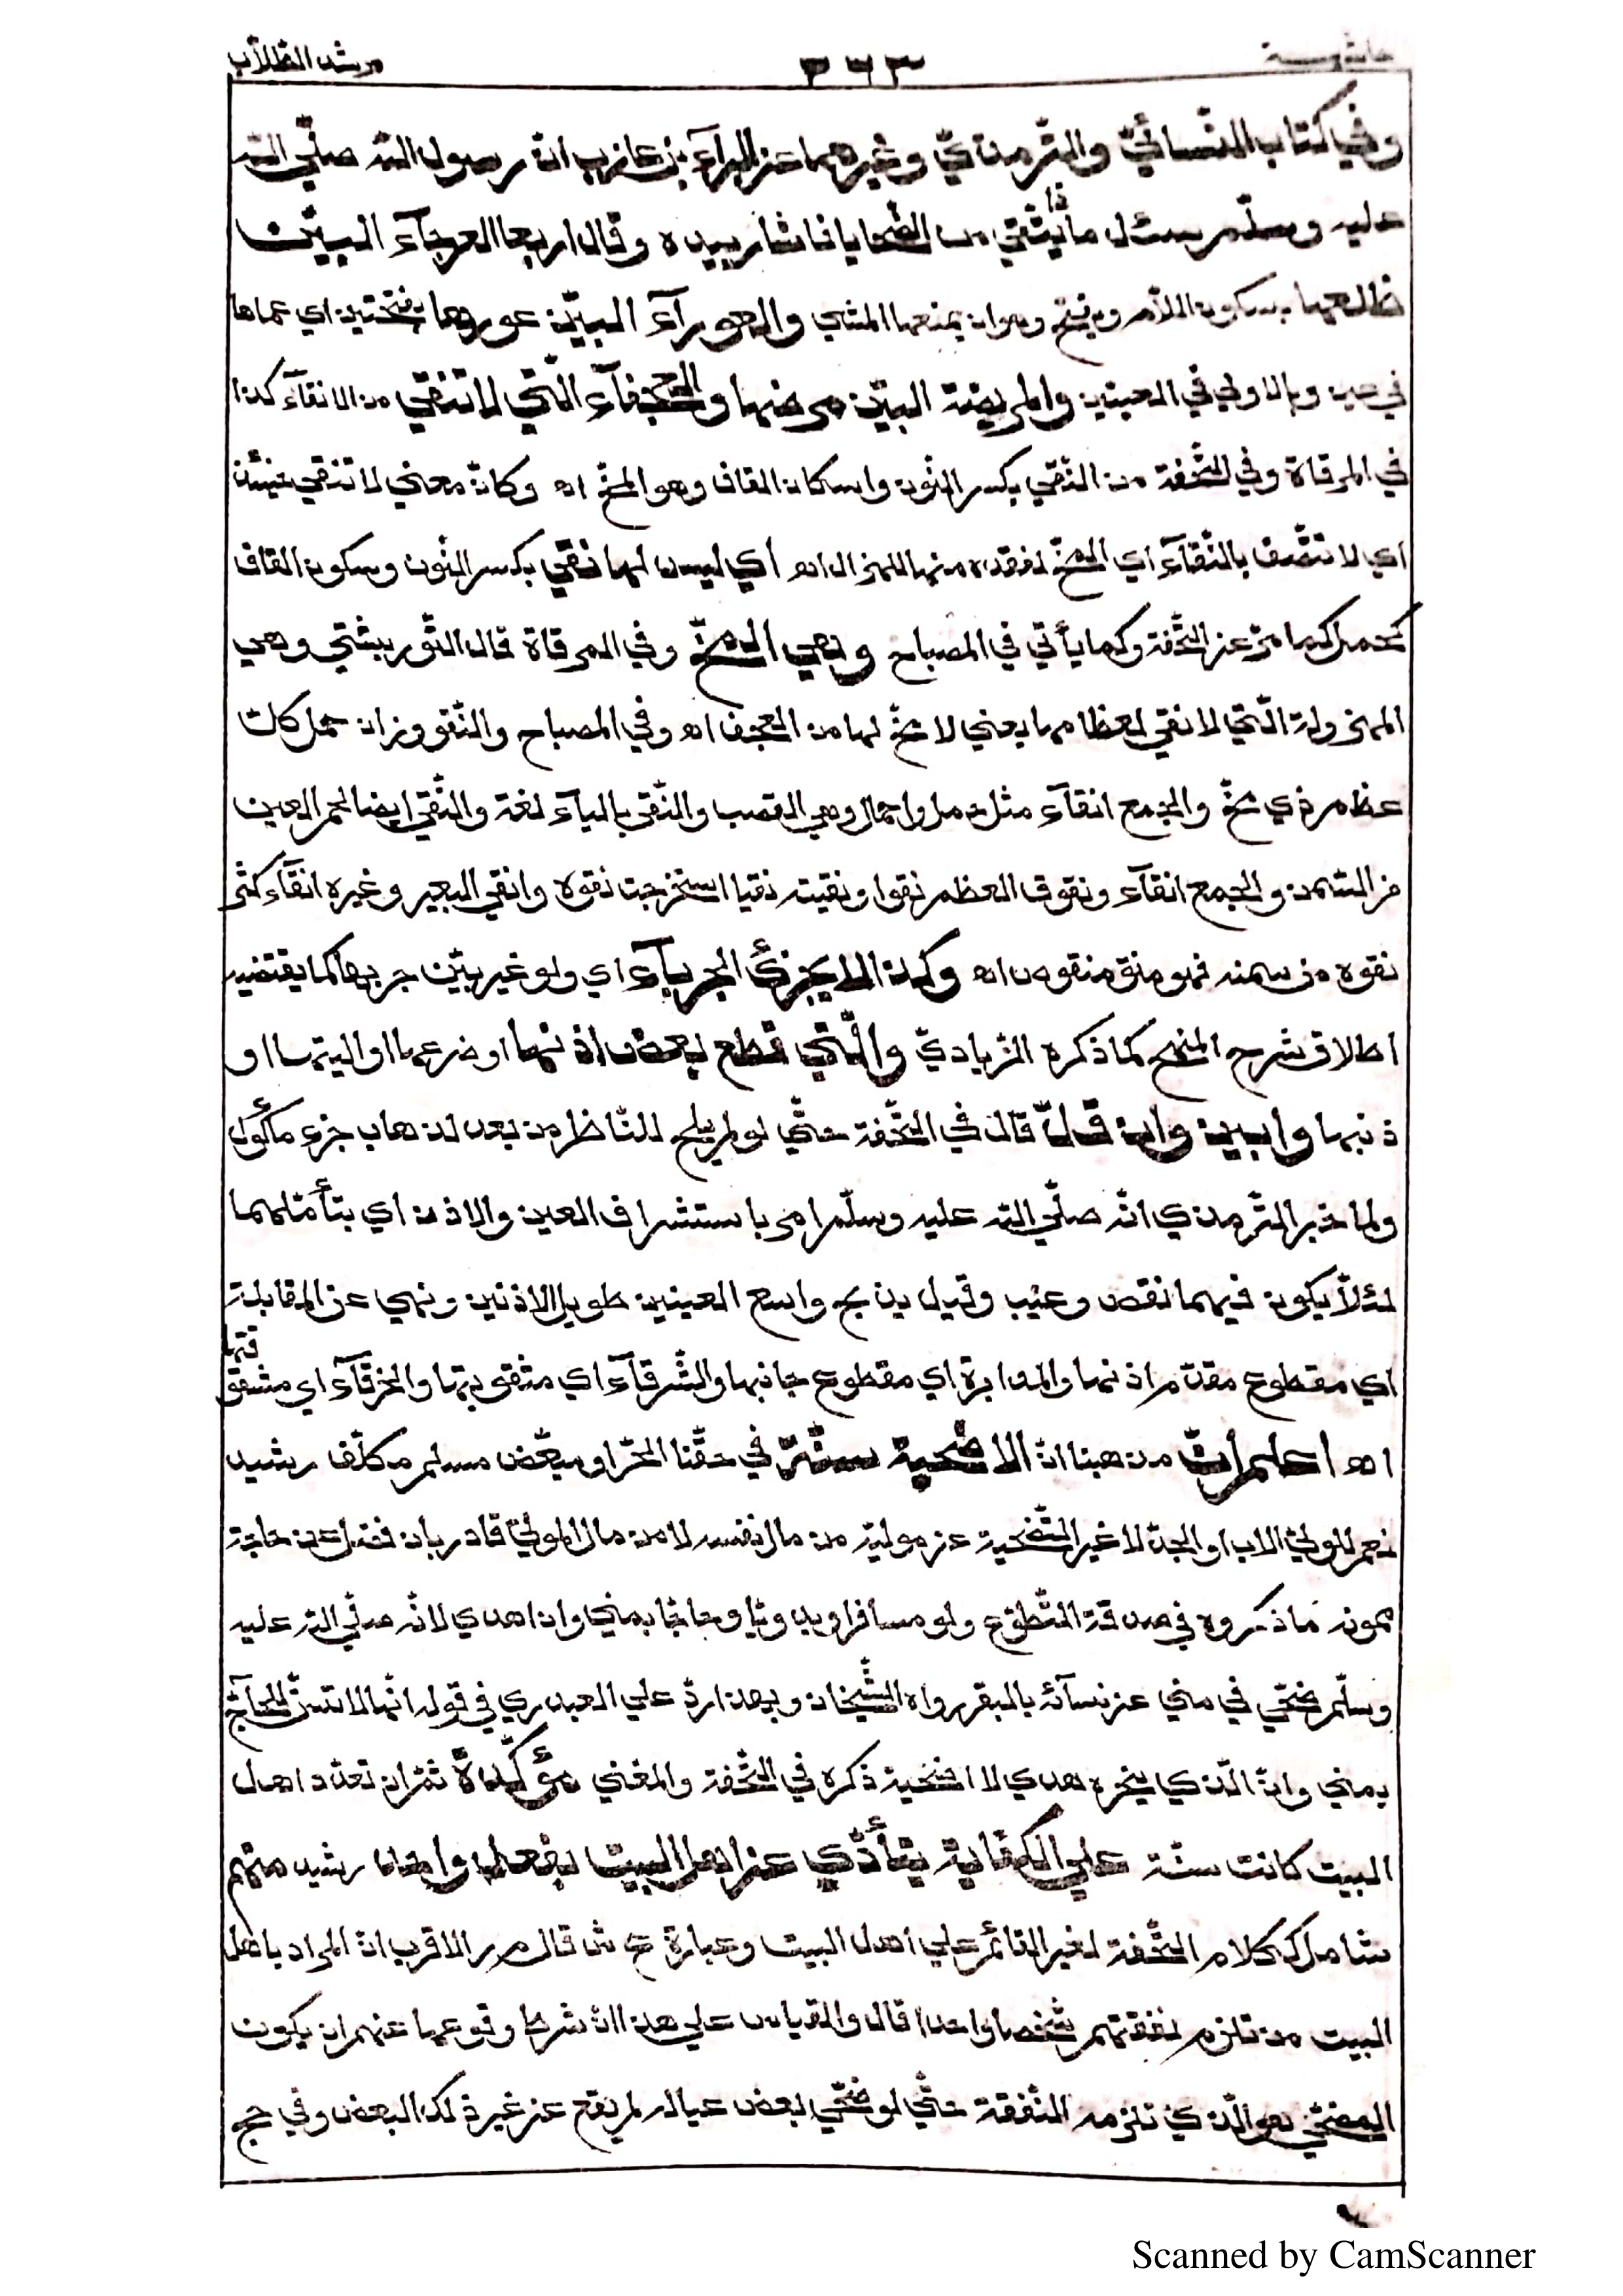 حاشية ٣٦٣ مرشد الطلّاب
وفي كتاب النّسائيّ والتّرمذيّ وغيرهما عن البرآء بن عازب انّ رسول الله صلّي الله
عليه وسلّم سئل ماذا يتّقي من الضّحايا فاشار بيده وقال اربعا العرجآء البيّن
ظلعها بسكون اللّام ويفتح وهو ان يمنعها المشي والعورآء البيّن عورها بفتحتين اي عماها
في عين وبالاولي في العينين والمريضة البيّن مرضها والعجفآء الّتي لا تنقي من الانقآء كذا
في المرقاة وفي التّحفة من النّقي بكسر النّون واسكان القاف وهو المخّ اه وكانّ معني لا تنقي حينئذ
اي لا تتّصف بالنّقآء اي المخّ لفقده منها للهزال اه أي ليس لها نقي بكسر النّون وسكون القاف
كحمل كما مرّ عن التّحفة وكما يأتي في المصباح وهي المخّ وفي المرقاة قال التّوربشتي وهي
المهزولة الّتي لا نقي لعظامها يعني لا مخّ لها من العجف اه وفي المصباح والنّقو وزان حمل كلّ
عظم ذي مخّ والجمع انقآء مثل حمل واحمال وهي القصب والنّقي باليآء لغة والنّقي ايضا شحم العين
من السّمن والجمع انقآء ونقوت العظم نقوا ونقيته نقيا استخرجت نقوه وانقي البعير وغيره انقآء كثر
نقوه من سمنه فهو منق منقوص اه وكذا لا يجزئ الجربآء اي ولو غير بيّن جربها كما يقتضيه
اطلاق شرح المنهج كما ذكره الزّياديّ والّتي قطع بعض اذنها او ضرعها او اليتها او
ذنبها وابين وان قلّ قال في التّحفة حتّي لو لم يلح للنّاظر من بعد لذهاب جزء مأكول
ولما خبر التّرمذي انّه صلّي الله عليه وسلّم امر باستشراف العين والاذن اي بتأمّلهما
لئلّا يكون فيهما نقص وعيب وقيل بذبح واسع العينين طويل الاذنين ونهي عن المقابلة
اي مقطوع مقدّم اذنها والمدابرة اي مقطوع جانبها والشّرقآء اي مثقوبتها والخرقآء اي مشقوقتها
اه اعلم أنّ من هنا انّ الاضحية سنّة في حقّنا الحرّ او مبعّض مسلم مكلّف رشيد
نعم للوليّ الاب او الجدّ لا غير التّضحية عن موليه من مال نفسه لا من مال المولي قادر بان فضل عن حاجة
ممونه ما ذكروه في صدقة التّطوّع ولو مسافرا وبدويّا وحاجّا بمني وان اهدي لانّه صلّي الله عليه
وسلّم ضحّي في مني عن نسآئه بالبقر رواه الشّيخان وبهذا ردّ علي العبدري في قوله انّها لا تسنّ للحآجّ
بمني وانّ الّذي ينحره هدي لا اضحية ذكره في التّحفة والمغني مؤكّدة ثمّ ان تعدّد اهل
البيت كانت سنّة علي الكفاية يتأدّي عن اهل البيت بفعل واحد رشيد منهم
شامل ككلام التّحفة لغير القائم علي اهل البيت وعبارة ع ش قال م ر الاقرب انّ المراد باهل
البيت من تلزم نفقتهم شخصا واحدا قال والقياس علي هذا انّ شرط وقوعها عنهم ان يكون
المضحّي هو الّذي تلزمه النّفقة حتّي لو ضحّي بعض عياله لم يقع عن غير ذلك البعض وفي حج
Scanned by CamScanner